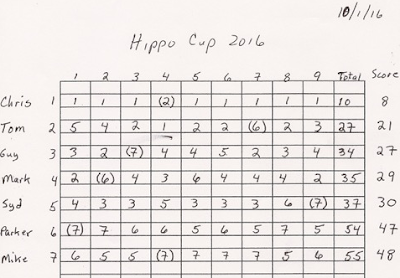 10/1/16
Hippo Cup 2016
1 2 3 4 5 6 7 8 9 Total Score
Chris 1 1 1 1 (2) 1 1 1 1 1 10 8
Tom 2 5 4 2 1 2 2 (6) 2 3 27 21
Guy 3 3 2 (7) 4 4 5 2 3 4 34 27
Mark 4 2 (6) 4 3 6 4 4 4 2 35 29
Syd 5 4 3 3 5 3 3 3 6 (7) 37 30
Parker 6 (7) 7 6 6 5 6 5 7 5 54 47
Mike 7 6 5 5 (7) 7 7 7 5 6 55 48